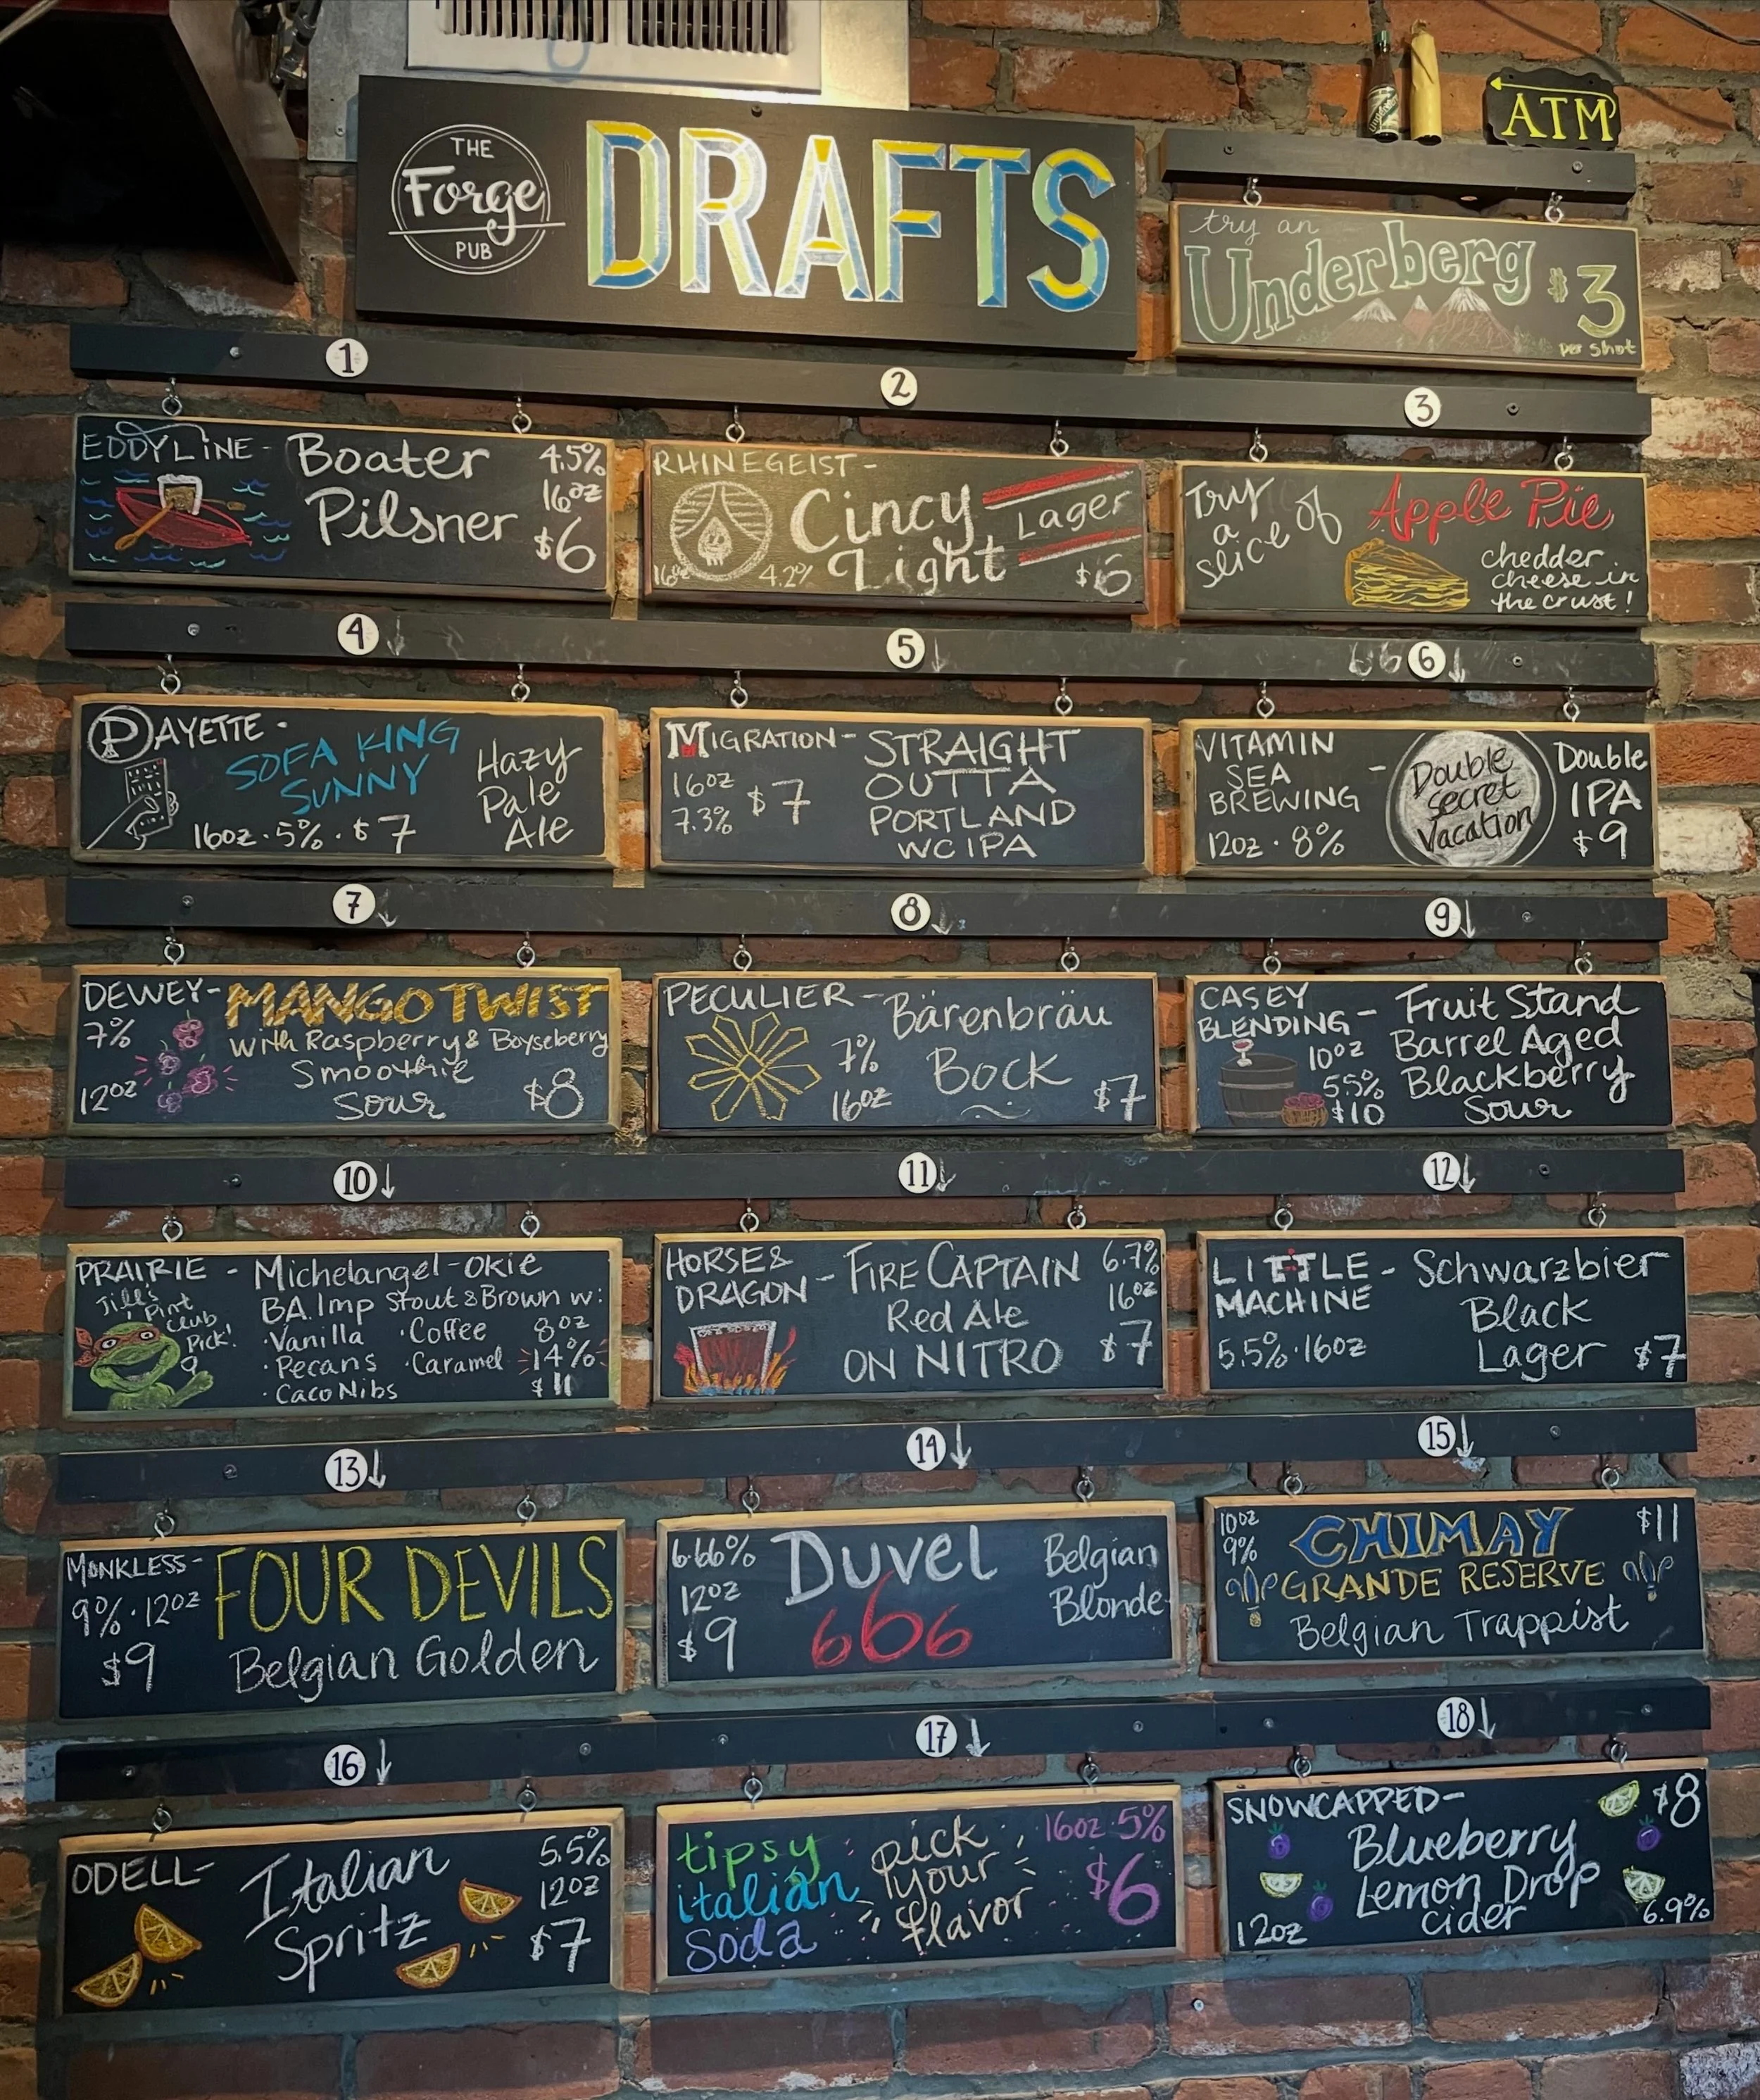 THE
Forge
PUB
DRAFTS
ATM
try an
Underberg
$3
per shot
1
EDDYLINE -
Boater
Pilsner
4.5%
16oz
$6
2
RHINEGEIST -
Cincy
Light
Lager
16oz
4.2%
$6
3
Try
a
slice of
Apple Pie
chedder
cheese in
the crust!
4 ↓
PAYETTE -
SOFA KING
SUNNY
16oz · 5% · $7
Hazy
Pale
Ale
5 ↓
MIGRATION -
16oz
7.3%
$7
STRAIGHT
OUTTA
PORTLAND
WC IPA
66 6 ↓
VITAMIN
SEA
BREWING -
12oz · 8%
Double
Secret
Vacation
Double
IPA
$9
7 ↓
DEWEY -
7%
12oz
MANGO TWIST
with Raspberry & Boyseberry
Smoothie
Sour
$8
8 ↓
PECULIER -
Bärenbräu
Bock
7%
16oz
$7
9 ↓
CASEY
BLENDING -
10oz
5.5%
$10
Fruit Stand
Barrel Aged
Blackberry
Sour
10 ↓
PRAIRIE -
Jill's
Pint
Club
Pick!
Michelangel-okie
B.A. Imp Stout & Brown w:
· Vanilla · Coffee
· Pecans · Caramel
· Caco Nibs
8oz
14%
$11
11 ↓
HORSE &
DRAGON -
FIRE CAPTAIN
Red Ale
ON NITRO
6.7%
16oz
$7
12 ↓
LITTLE -
MACHINE
5.5% · 16oz
Schwarzbier
Black
Lager
$7
13 ↓
MONKLESS -
9% · 12oz
$9
FOUR DEVILS
Belgian Golden
14 ↓
6.66%
12oz
$9
Duvel
666
Belgian
Blonde
15 ↓
10oz
9%
CHIMAY
$11
GRANDE RESERVE
Belgian Trappist
16 ↓
ODELL -
Italian
Spritz
5.5%
12oz
$7
17 ↓
tipsy
italian
Soda
pick
your
flavor
16oz · 5%
$6
18 ↓
SNOWCAPPED -
Blueberry
Lemon Drop
cider
$8
12oz
6.9%